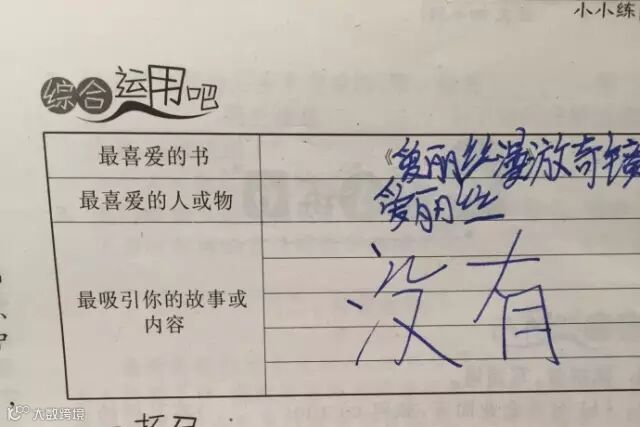 小小练
综合运用吧
最喜爱的书
《爱丽丝漫游奇镜
最喜爱的人或物
爱丽丝
最吸引你的故事或
内容
没有
大数跨境